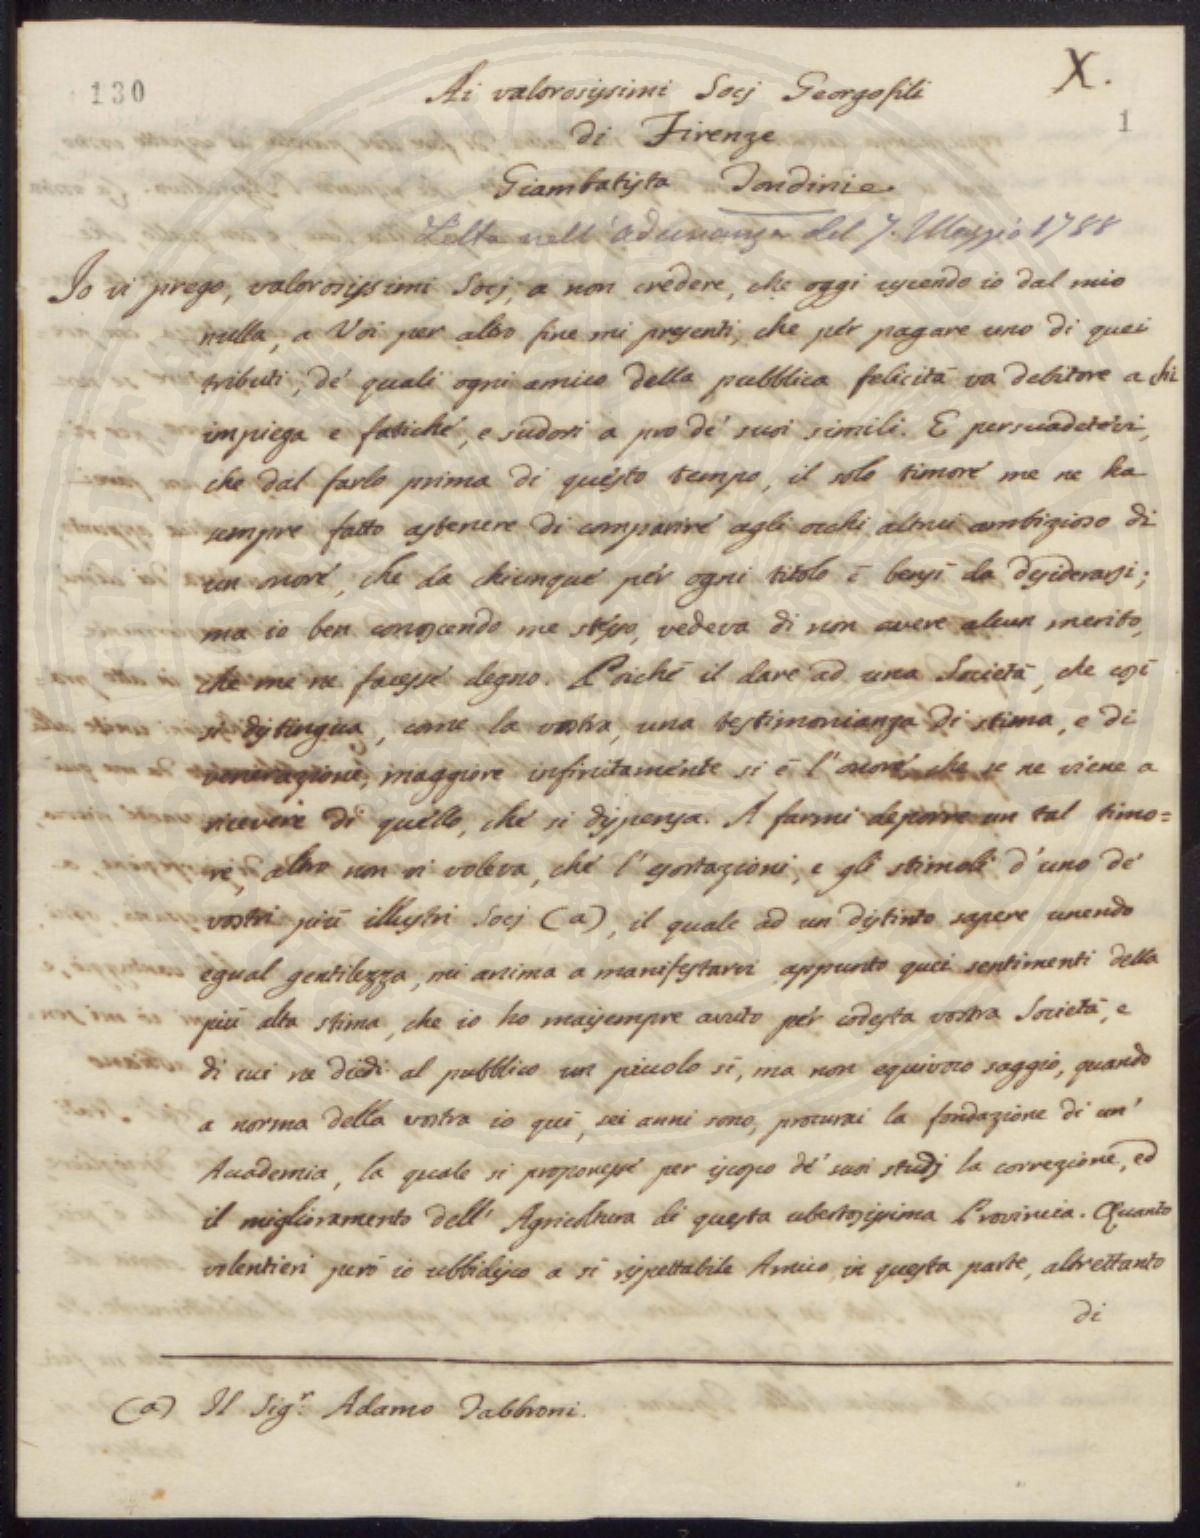 130
X.
1
Ai valorosissimi Socj Georgofili
di Firenze
Giambatista Jondini
Letta nell'adunanza del 7. Maggio 1788
Io vi prego, valorosissimi Socj, a non credere, che oggi uscendo io dal mio
nulla, a Voi per altro fine mi presenti, che per pagare uno di quei
tributi, de' quali ogni amico della pubblica felicità va debitore a chi
impiega e fatiche, e sudori a pro de' suoi simili. E persuadetevi,
che dal farlo prima di questo tempo, il solo timore me ne ha
sempre fatto astenere di comparire agli occhi altrui ambizioso di
un onore, che da chiunque per ogni titolo è bensì da desiderarsi;
ma io ben conoscendo me stesso, vedeva di non avere alcun merito,
che me ne facesse degno. Poichè il dare ad una Società, che così
si distingua, come la vostra, una testimonianza di stima, e di
venerazione, maggiore infinitamente si è l'onore che se ne viene a
ricevere di quello, che si dispensa. A farmi deporre un tal timo=
re, altro non vi voleva, che l'esortazioni, e gli stimoli d'uno de'
vostri più illustri Socj (a), il quale ad un distinto sapere unendo
egual gentilezza, mi anima a manifestarvi appunto quei sentimenti della
più alta stima, che io ho maisempre avuto per codesta vostra Società, e
di cui ne diedi al pubblico un piccolo sì, ma non equivoco saggio, quando
a norma della vostra io quì, sei anni sono, procurai la fondazione di un'
Accademia, la quale si proponesse per iscopo de' suoi studj la correzione, ed
il miglioramento dell'Agricoltura di questa ubertosissima Provincia. Quanto
volentieri però io ubbidisco a sì rispettabile Amico in questa parte, altrettanto
di
(a) Il Sig.r Adamo Fabbroni.